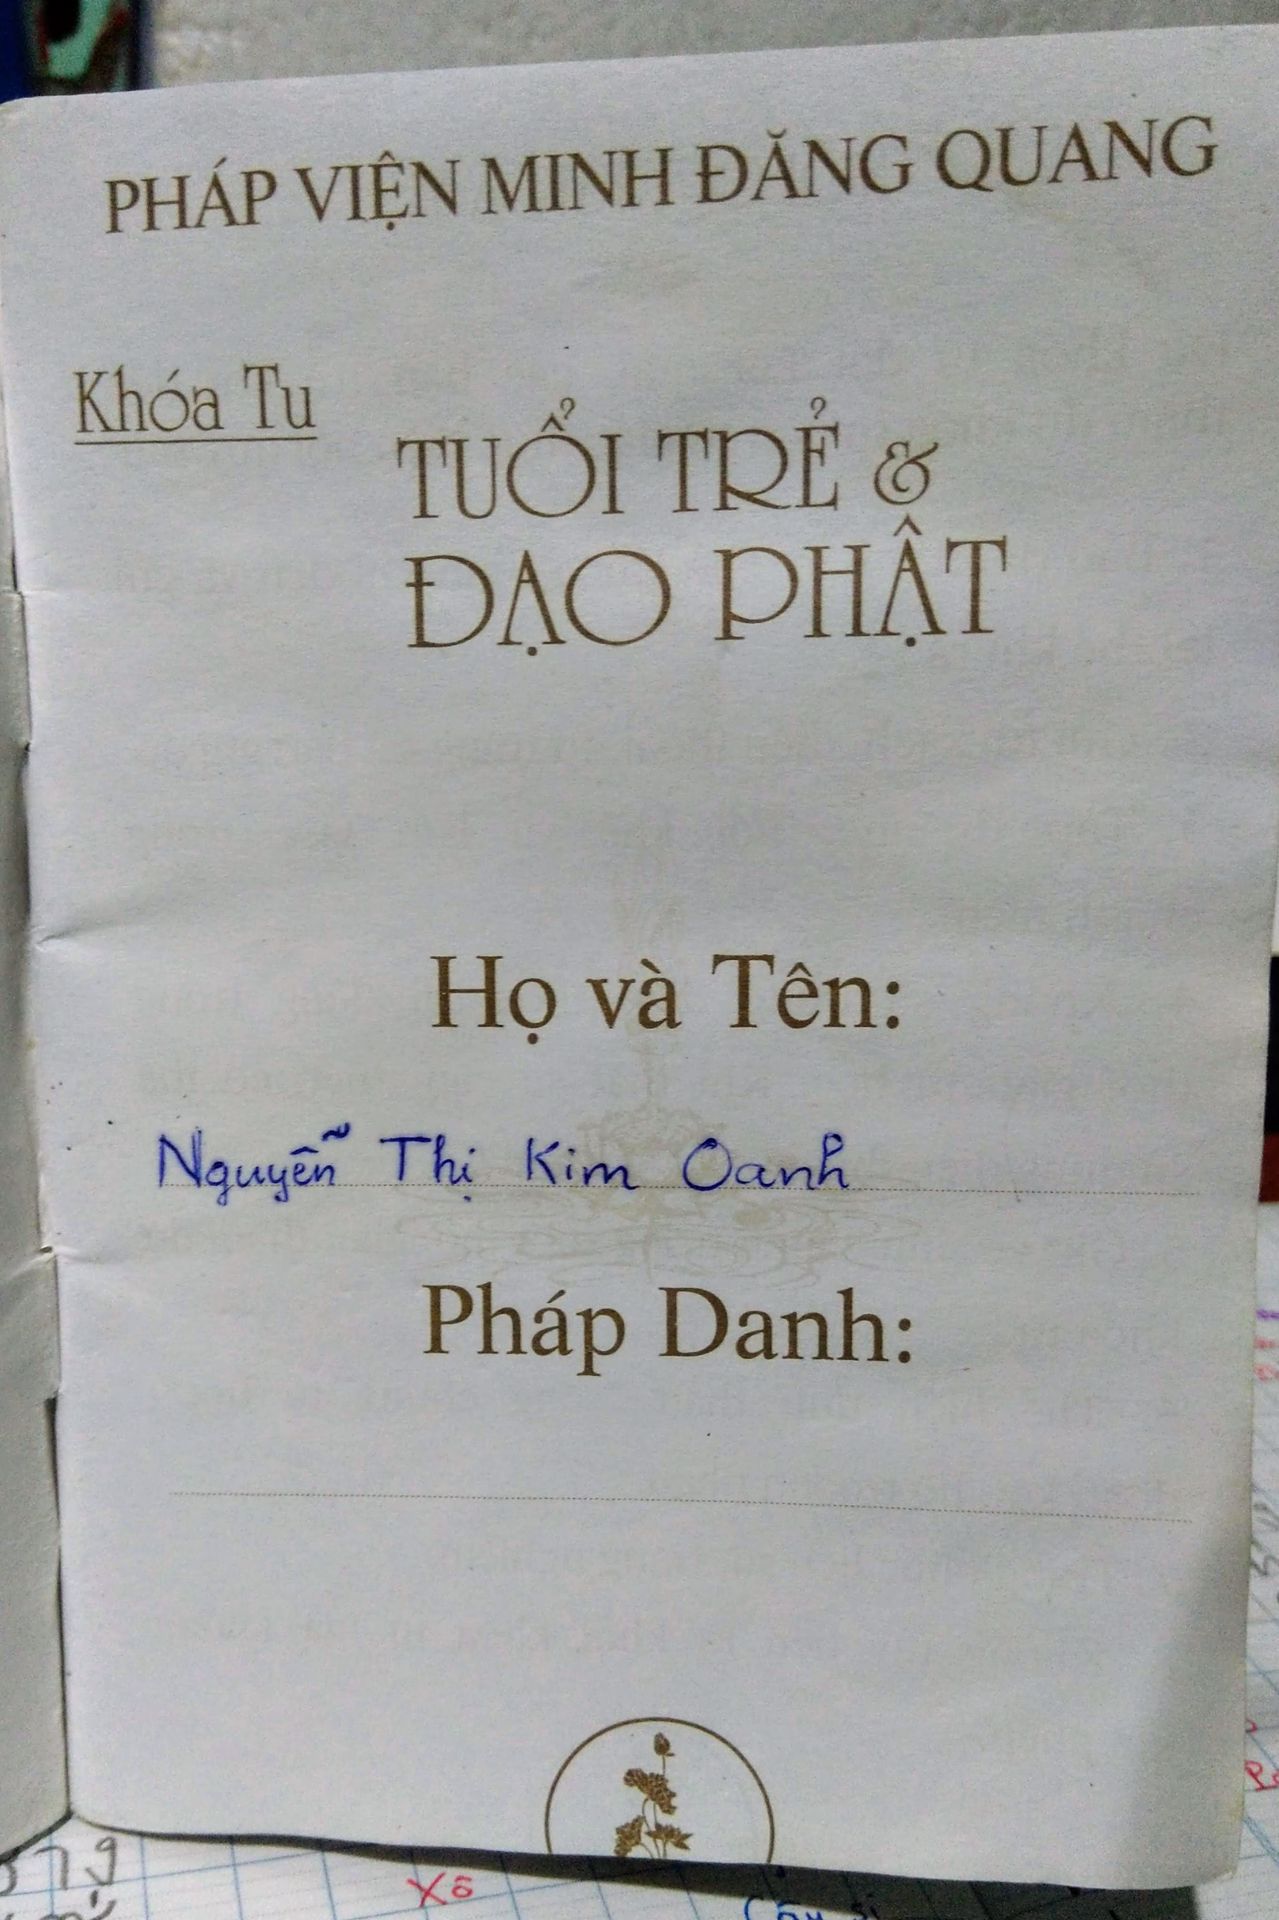 PHÁP VIỆN MINH ĐĂNG QUANG
Khóa Tu
TUỔI TRẺ &
ĐẠO PHẬT
Họ và Tên:
Nguyễn Thị Kim Oanh
Pháp Danh:
Xô